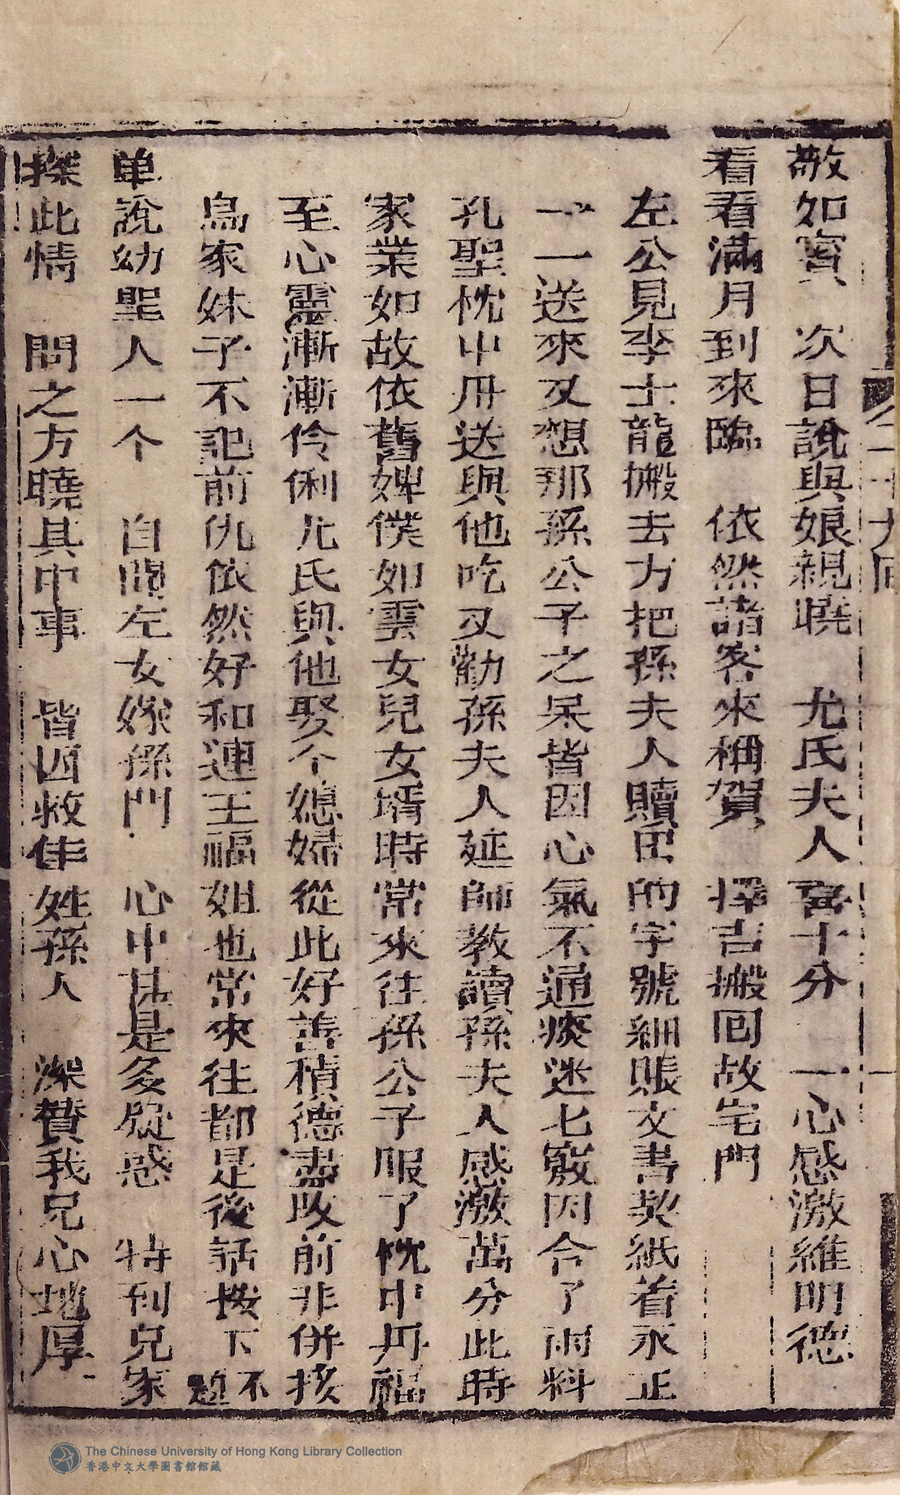 敬如賓 次日說與娘親曉 尤氏夫人喜十分 一心感激維明德
看看滿月到來臨 依然諸客來稱賀 擇吉搬囘故宅門
左公見李士龍搬去方把孫夫人贖田的字號細賬文書契紙着永正
一一送來又想那孫公子之呆皆因心氣不通痰迷七竅因合了兩料
孔聖枕中丹送與他吃又勸孫夫人延師教讀孫夫人感激萬分此時
家業如故依舊婢僕如雲女兒女壻時常來往孫公子服了枕中丹福
至心靈漸漸伶俐尤氏與他娶个媳婦從此好善積德盡改前非併孩
鳥家妹子不記前仇依然好和連王福姐也常來往都是後話按下不題
单說幼聖人一个 自聞左女嫁孫門 心中甚是多疑惑 特到兄家
探此情 問之方曉其中事 皆因救伊姓孫人 深贊我兄心地厚
二十九回
The Chinese University of Hong Kong Library Collection
香港中文大學圖書館館藏